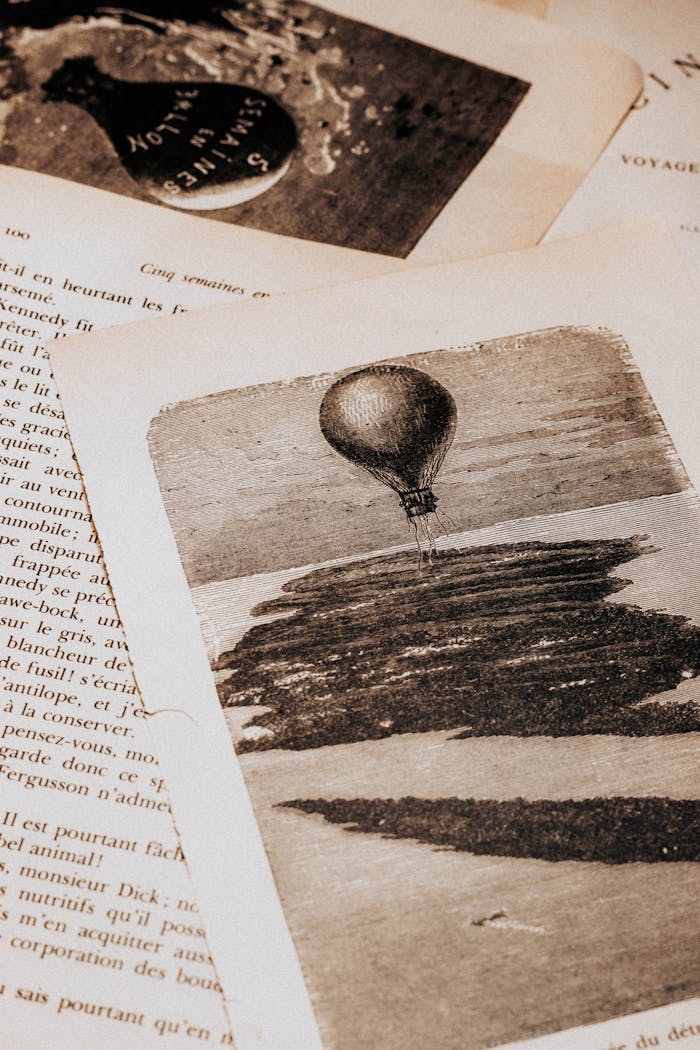 5 SEMAINES
EN
BALLON
VOYAGE
100
Cinq semaines en
it-il en heurtant les fr
arsemé.
Kennedy fit
rêter. Il
fût l'a
ue ou
s le lit
se désa
es gracie
quiets;
ssait avec
ir au vent
contourna
mmobile; il
pe disparut
frappée au
nnedy se préc
awe-bock, un
sur le gris, av
blancheur de
de fusil! s'écria
'antilope, et j'es
à la conserver.
pensez-vous, mo
garde donc ce sp
Fergusson n'adme
Il est pourtant fâch
bel animal!
s, monsieur Dick; no
s nutritifs qu'il poss
is m'en acquitter auss
corporation des bouc
u sais pourtant qu'en n
du détr